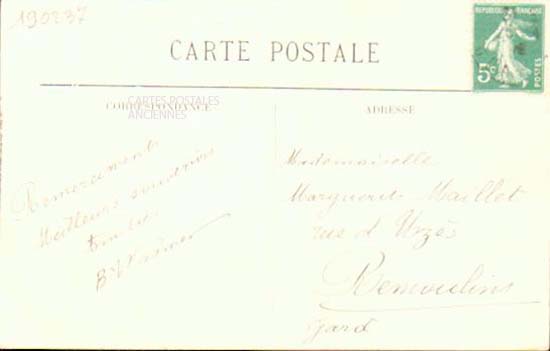 190237
REPUBLIQUE FRANÇAISE
5c
POSTES
CARTE POSTALE
CORRESPONDANCE
CARTES POSTALES
ANCIENNES
ADRESSE
Remerciements
Meilleurs souvenirs
Mademoiselle
Marguerite Maillet
rue d'Uzès
Remoulins
Gard